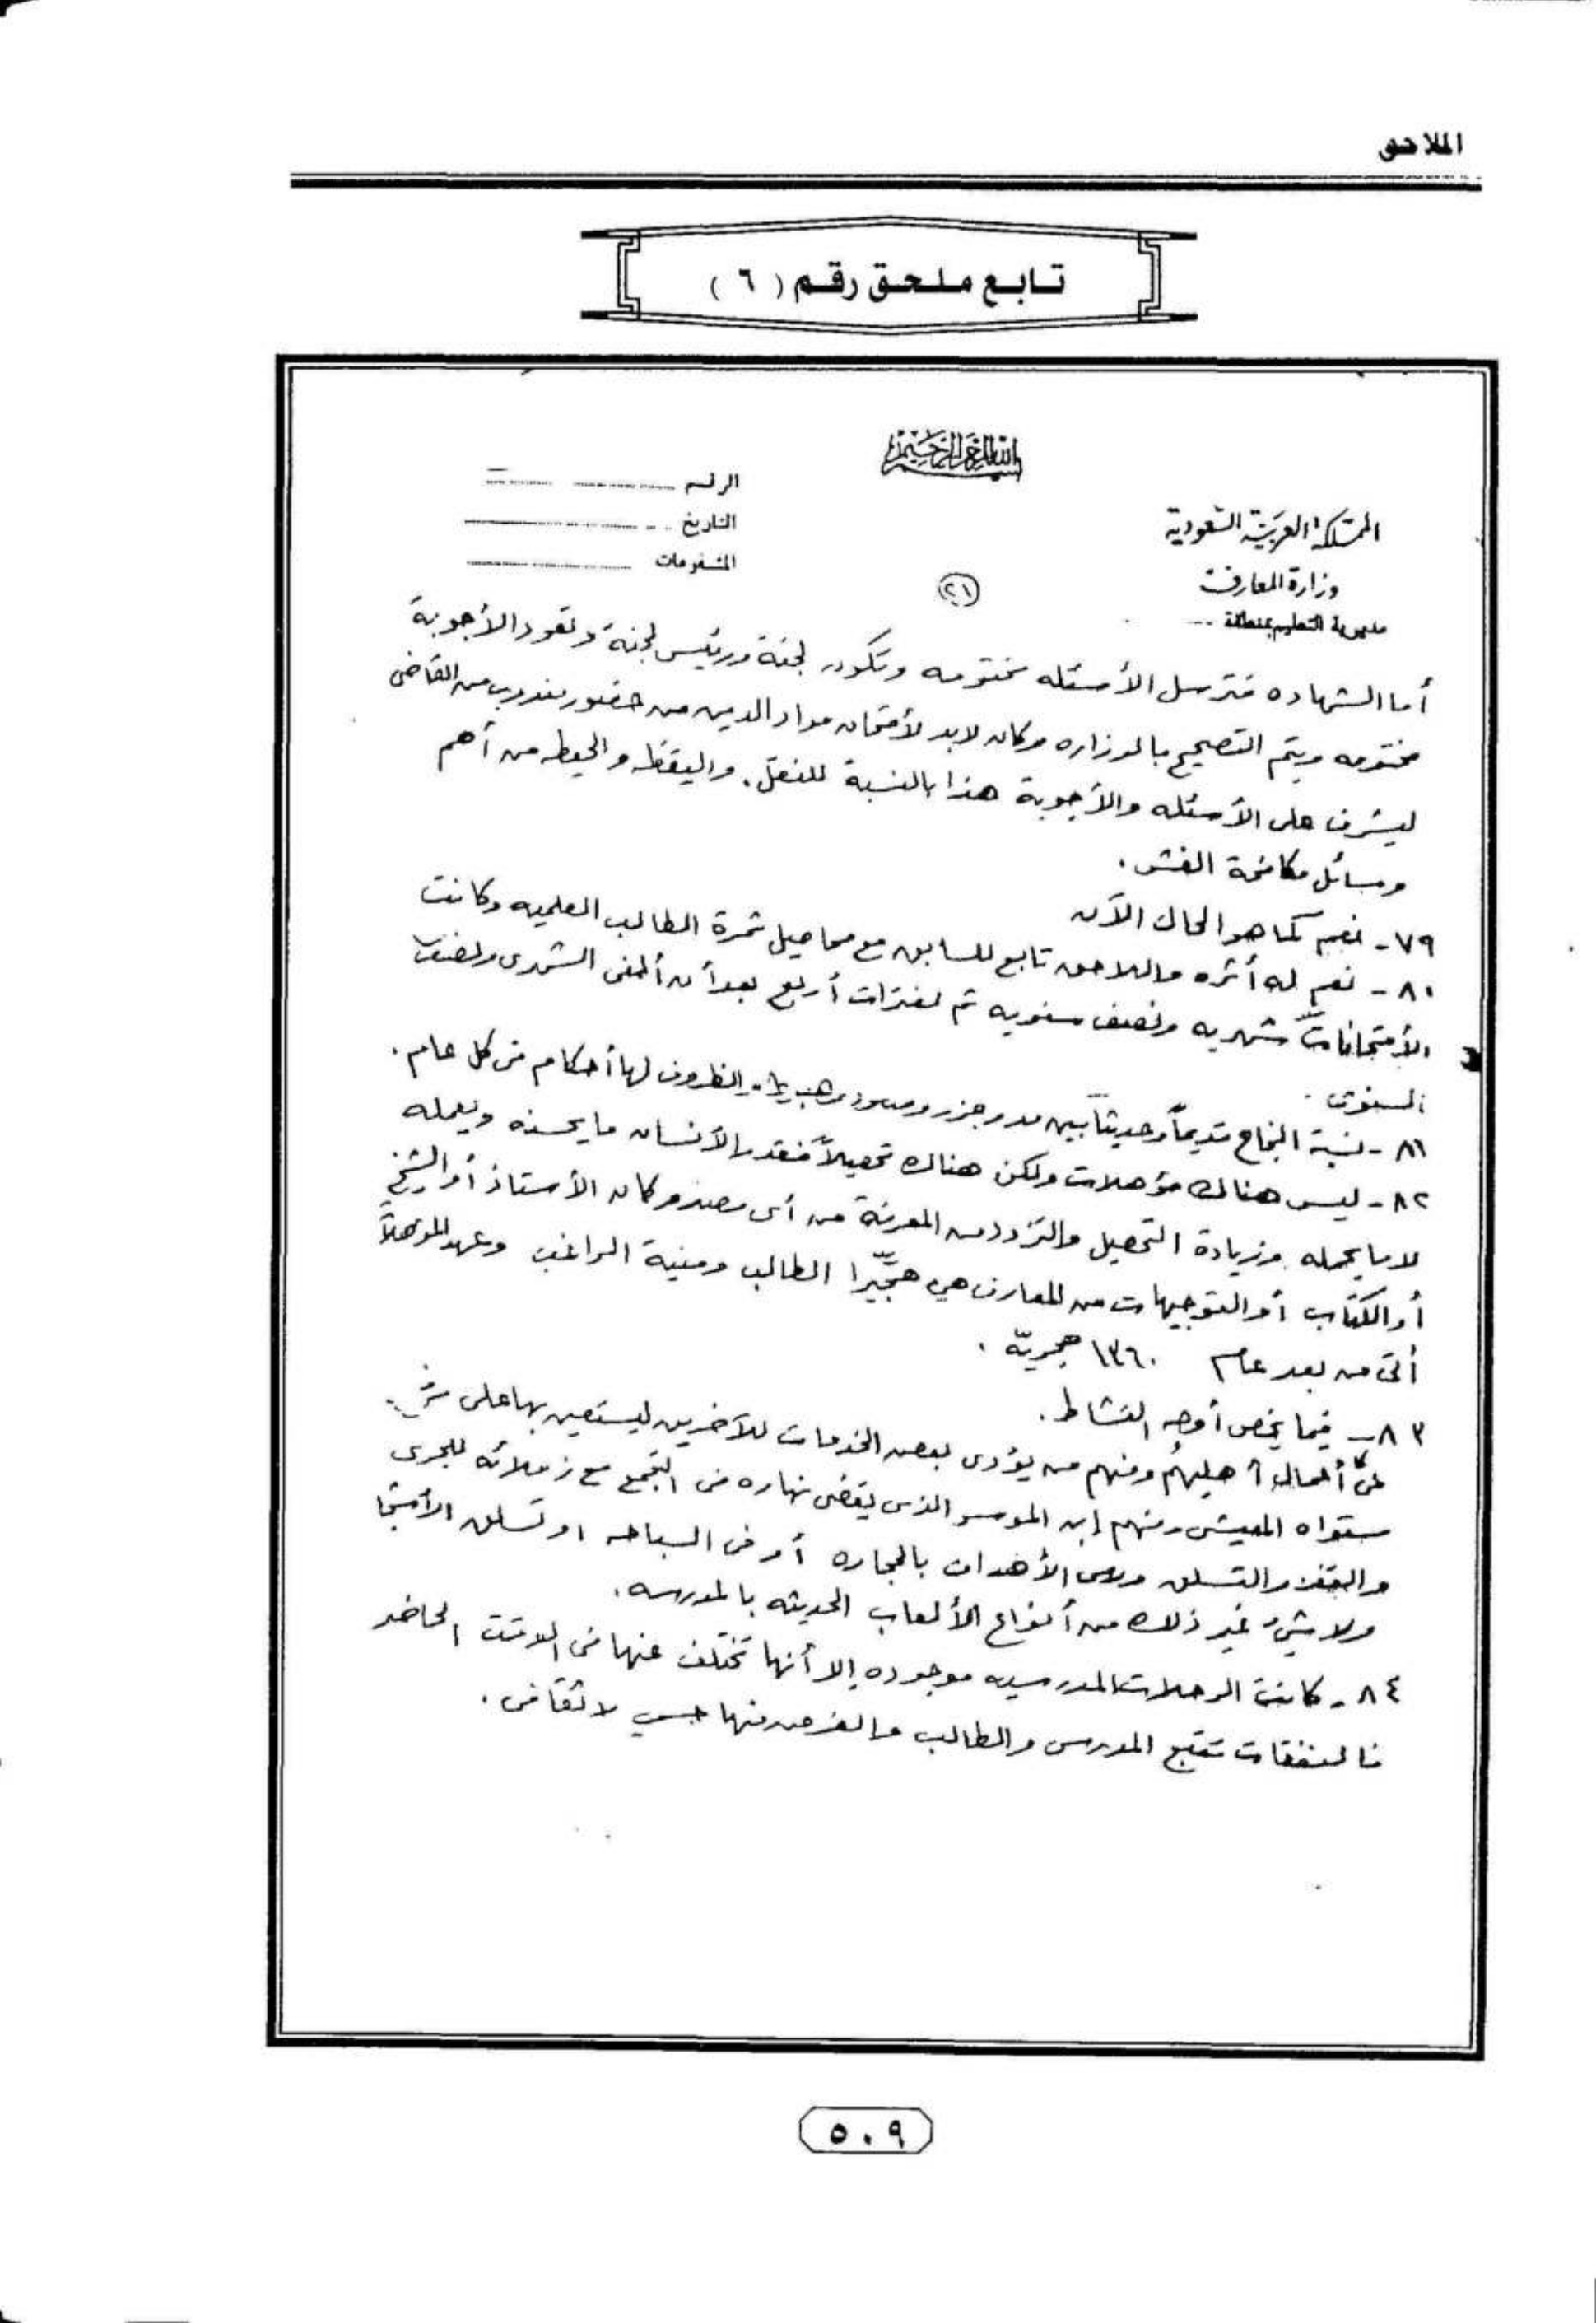 الملاحق
تابع ملحق رقم ( ٦ )
بسم الله الرحمن الرحيم
المملكة العربية السعودية
وزارة المعارف
مديرية التعليم بمنطقة
الرقم
التاريخ
المشفوعات
(٢١)
أما الشهاده فترسل الأسئله مختومه وتكون لجنة ورئيس لجنة وتعود الأجوبة
مختومه ويتم التصحيح بالوزاره وكان لابد لأمتحان مواد الدين من حضور مندوب من القاضى
ليشرف على الأسئله والأجوبة هذا بالنسبة للنقل. واليقظه والحيطه من أهم
وسائل مكافحة الغش.
٧٩ - نعم كما هو الحال الآن
٨٠ - نعم له أثره واللاحق تابع للسابق مع محاصيل ثمرة الطالب العلميه وكانت
الأمتحانات شهريه ونصف سنويه ثم لفترات أربع بعد أن ألغى الشهرى ونصف
السنوى.
٨١ - نسبة النجاح قديماً وحديثاً بين مد وجزر وصعود وهبوط والظروف لها أحكام فى كل عام.
٨٢ - ليس هناك مؤهلات ولكن هناك تحصيلاً فقدر الأنسان ما يحسنه ويعمله
لا ما يحمله وزيادة التحصيل والتزود من المعرفة من أى مصدر كان الأستاذ أو الشيخ
أو الكتاب أو التوجيهات من المعارف هي هجّيرا الطالب ومنية الراغب وعهد المؤهلات
أتى من بعد عام ١٣٦٠ هجريّة.
٨٣ - فيما يخص أوجه النشاط.
أعمال أهليهم ومنهم من يؤدى بعض الخدمات للآخرين ليستعين بها على
مستواه المعيشى ومنهم إبن الموسر الذى يقضى نهاره فى التجمع مع زملائه للجرى
والقفز والتسلق ورمى الأهداف بالحجاره أو فى السباحه او تسلق
ولا شيءُ غير ذلك من أنواع الألعاب الحديثه بالمدرسه.
٨٤ - كانت الرحلات المدرسيه موجوده إلا أنها تختلف عنها فى الوقت الحاضر
فالنفقات تتبع المدرس والطالب والغرض منها جسمي لا ثقافى.
٥٠٩